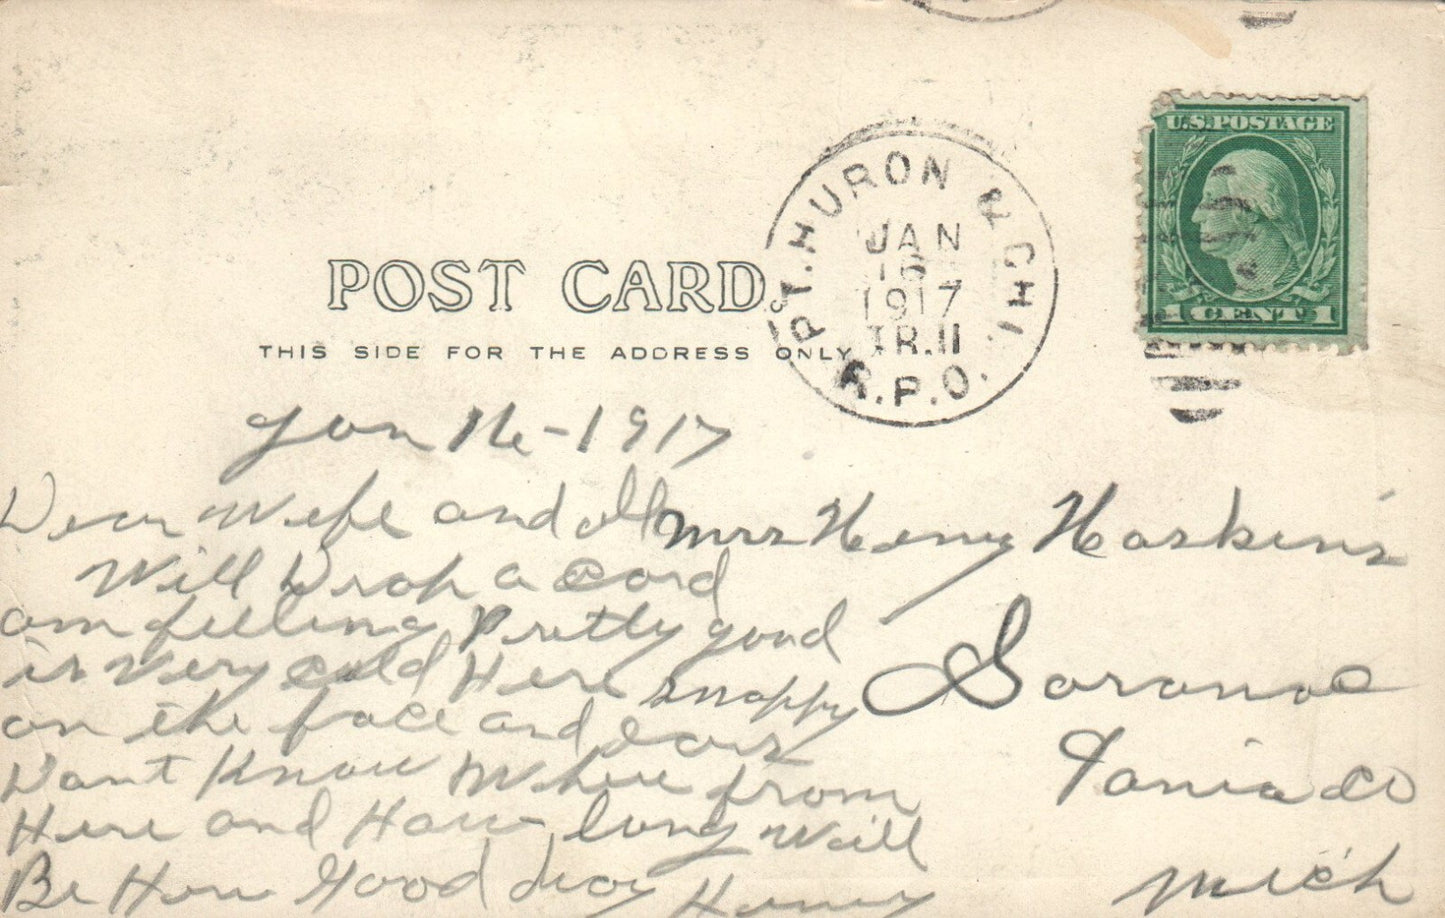 U.S. POSTAGE
1 CENT 1
PT. HURON & CHI.
JAN
16
1917
TR.11
R.P.O.
POST CARD.
THIS SIDE FOR THE ADDRESS ONLY
Jan 16-1917
Dear Wife and all
Will Drop a Card
am feeling Pretty good
is Very Cold Here snappy
on the face and ears
Dant Know Where from
Here and How long Will
Be Good Henry
Mrs Henry Haskins
Saranac
Ionia Co
Mich